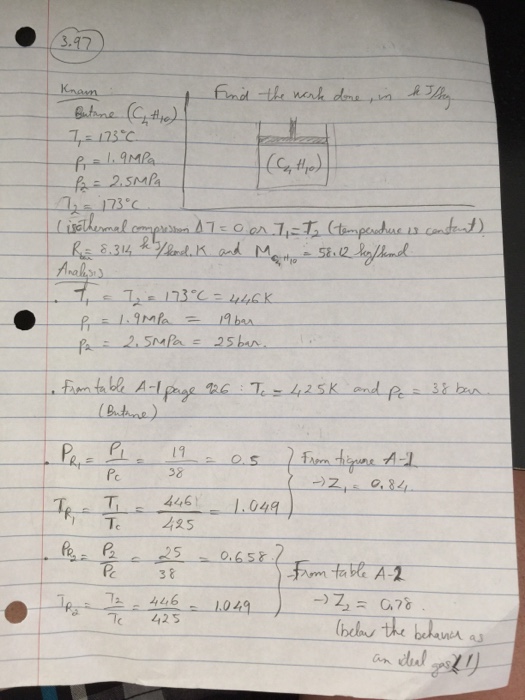 3.97
Known
Butane (C4H10)
T1 = 173°C
P1 = 1.9MPa
P2 = 2.5MPa
T2 = 173°C
Find the work done, in kJ/kg
(C4H10)
(isothermal compression ΔT=0 or T1=T2 (temperature is constant)
R = 8.314 kJ/kmol.K and M C4H10 = 58.12 kg/kmol
Analysis
. T1 = T2 = 173°C = 446K
P1 = 1.9MPa = 19bar
P2 = 2.5MPa = 25bar.
. From table A-1 page 926 : Tc = 425K and Pc = 38 bar.
(Butane)
. PR1 = P1/Pc = 19/38 = 0.5
TR1 = T1/Tc = 446/425 = 1.049
} From figure A-1
→ Z1 = 0.84.
. PR2 = P2/Pc = 25/38 = 0.658
TR2 = T2/Tc = 446/425 = 1.049
} From table A-2
→ Z2 = 0.78.
(below the behavior as
an ideal gas!)